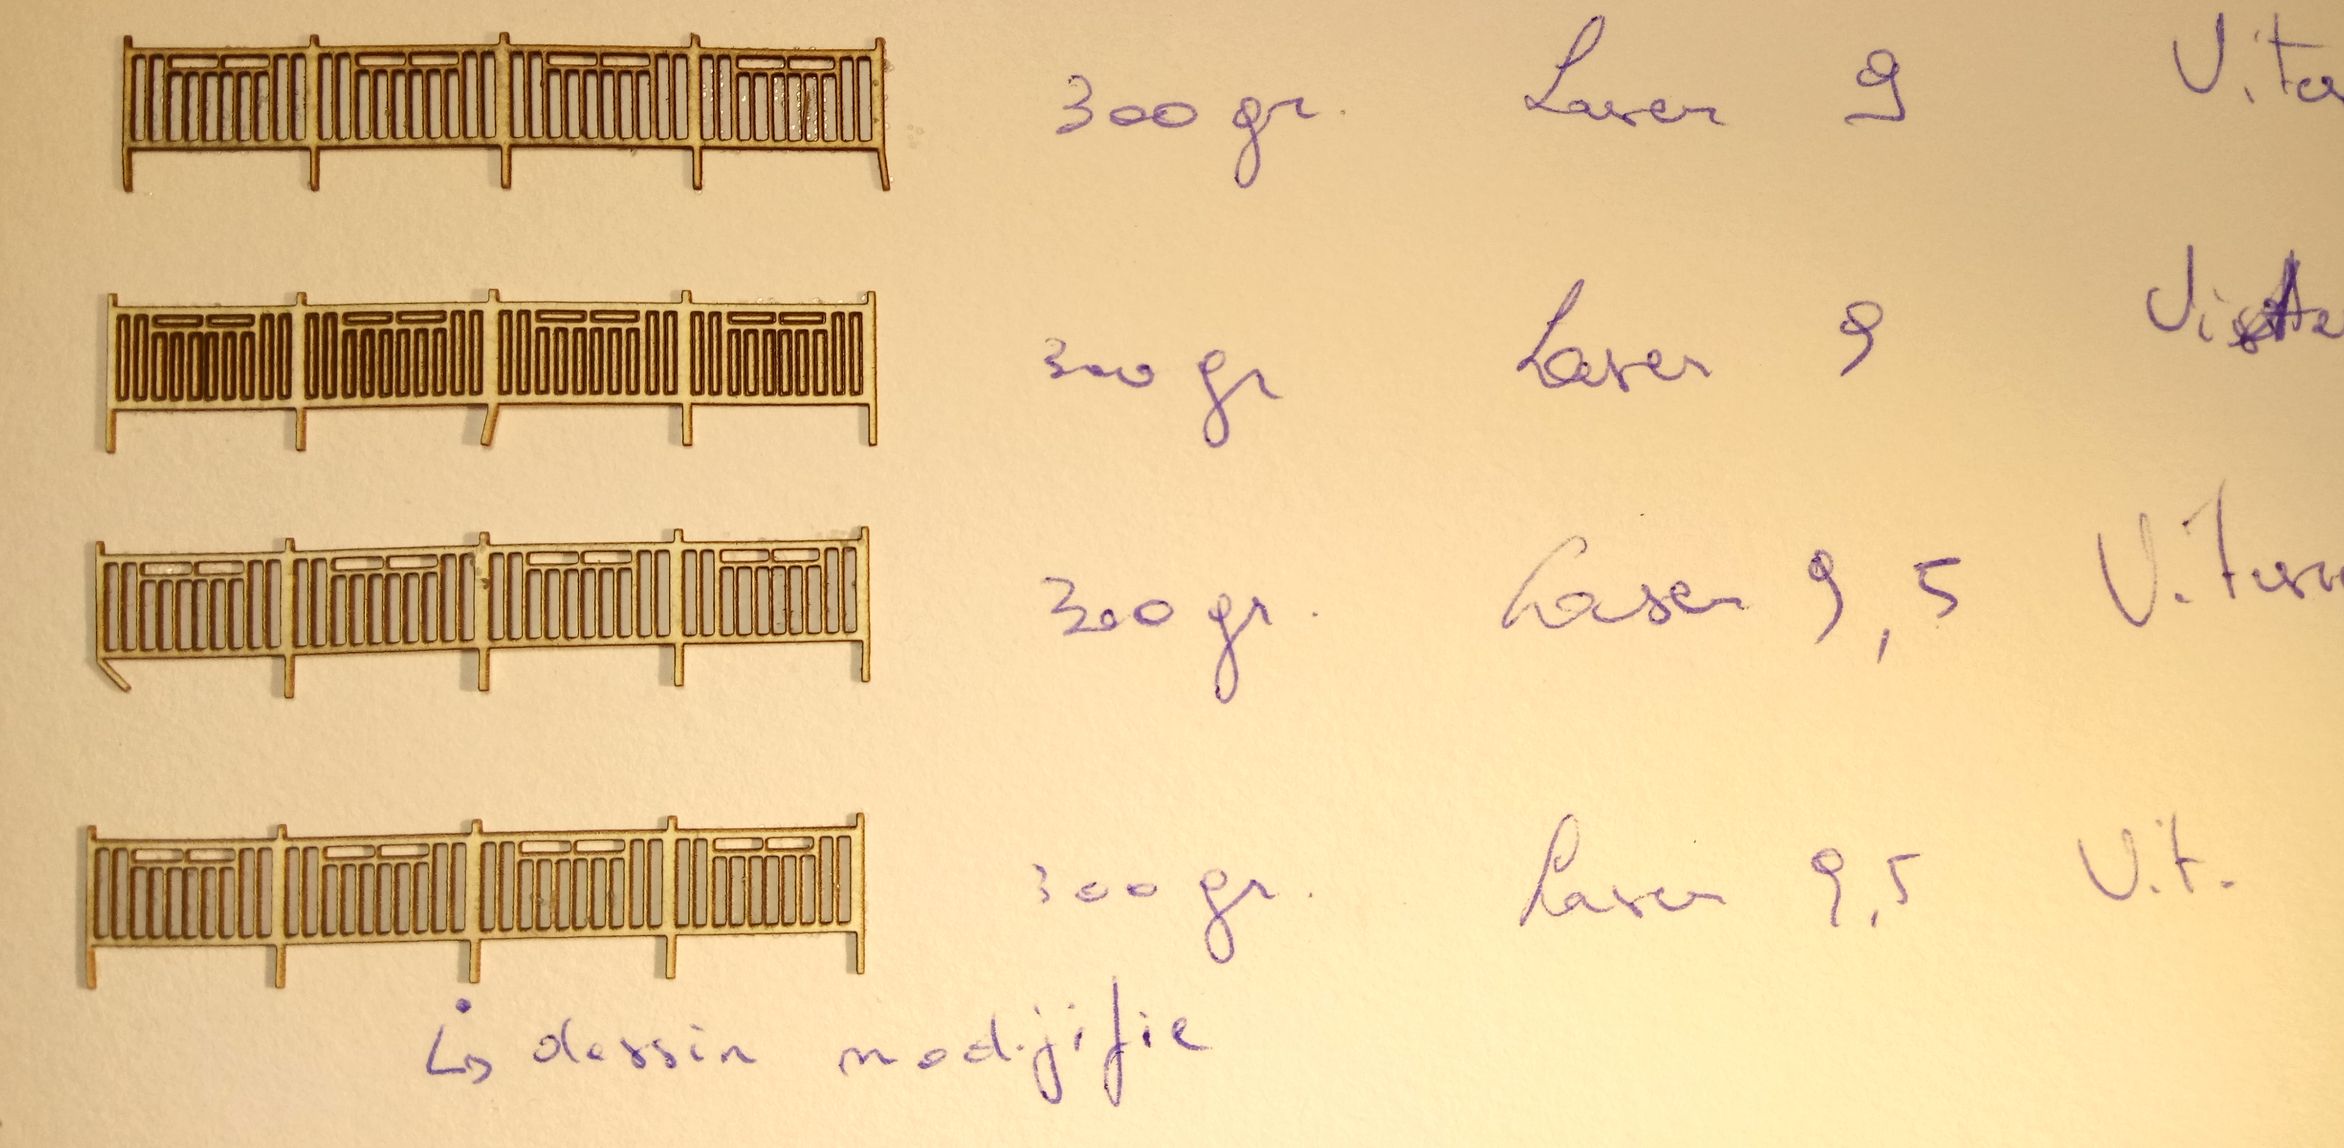 300 gr. Laser 9
300 gr Laser 9
300 gr. Laser 9,5
300 gr. Laser 9,5 Vit.
↳ dessin modifie